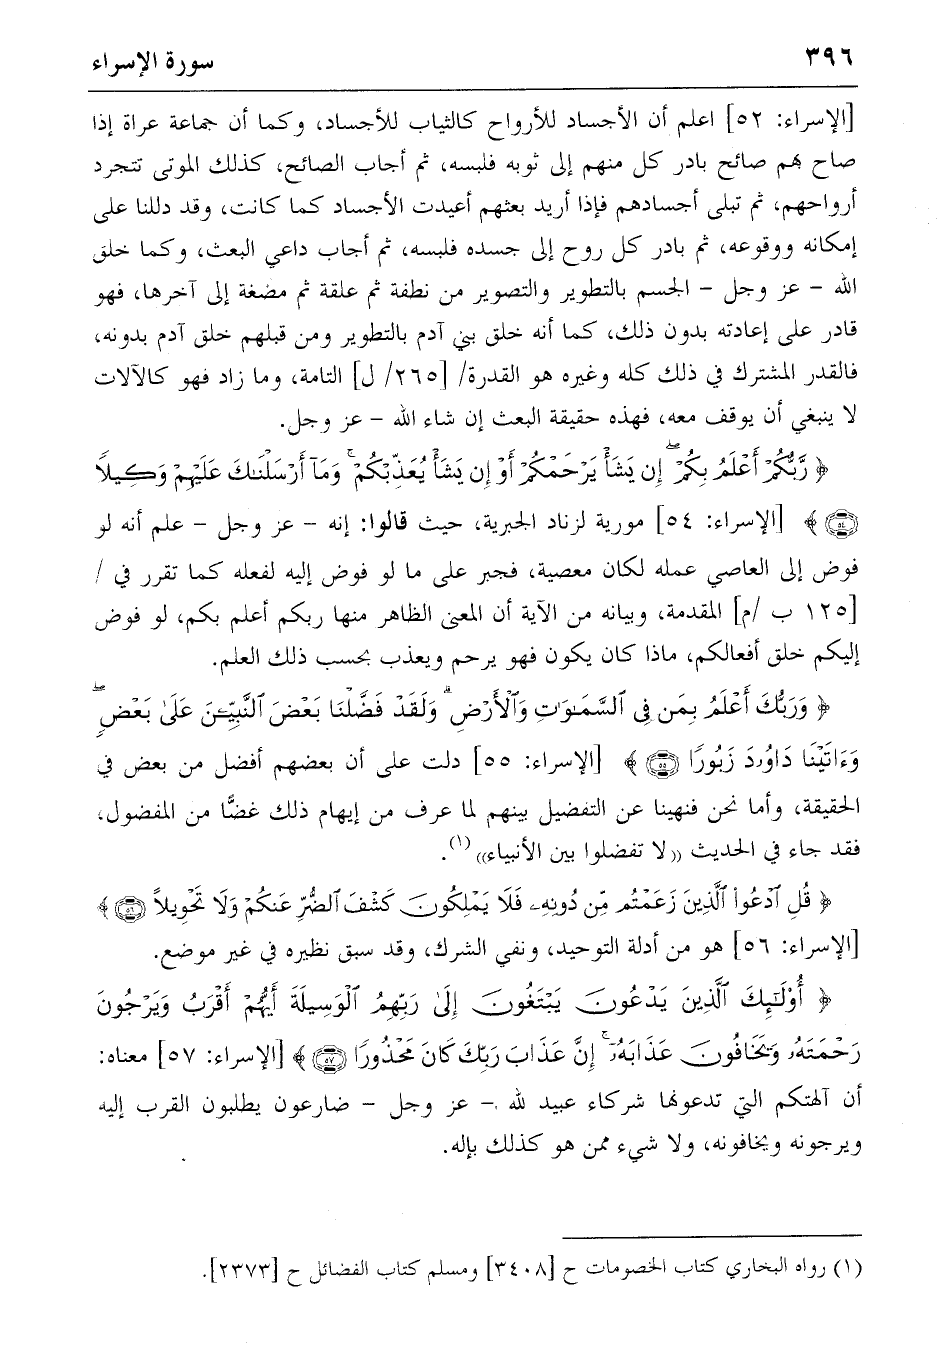 ٣٩٦
سورة الإسراء
[الإسراء: ٥٢] اعلم أن الأجساد للأرواح كالثياب للأجساد، وكما أن جماعة عراة إذا
صاح بهم صائح بادر كل منهم إلى ثوبه فلبسه، ثم أجاب الصائح، كذلك الموتى تتجرد
أرواحهم، ثم تبلى أجسادهم فإذا أريد بعثهم أعيدت الأجساد كما كانت، وقد دللنا على
إمكانه ووقوعه، ثم بادر كل روح إلى جسده فلبسه، ثم أجاب داعي البعث، وكما خلق
الله - عز وجل - الجسم بالتطوير والتصوير من نطفة ثم علقة ثم مضغة إلى آخرها، فهو
قادر على إعادته بدون ذلك، كما أنه خلق بني آدم بالتطوير ومن قبلهم خلق آدم بدونه،
فالقدر المشترك في ذلك كله وغيره هو القدرة/ [٢٦٥/ ل] التامة، وما زاد فهو كالآلات
لا ينبغي أن يوقف معه، فهذه حقيقة البعث إن شاء الله - عز وجل.
﴿ رَّبُّكُمْ أَعْلَمُ بِكُمْ ۖ إِن يَشَأْ يَرْحَمْكُمْ أَوْ إِن يَشَأْ يُعَذِّبْكُمْ ۚ وَمَآ أَرْسَلْنَـٰكَ عَلَيْهِمْ وَكِيلًا
٥٤ ﴾ [الإسراء: ٥٤] مورية لزناد الجبرية، حيث قالوا: إنه - عز وجل - علم أنه لو
فوض إلى العاصي عمله لكان معصية، فجبر على ما لو فوض إليه لفعله كما تقرر في /
[١٢٥ ب /م] المقدمة، وبيانه من الآية أن المعنى الظاهر منها ربكم أعلم بكم، لو فوض
إليكم خلق أفعالكم، ماذا كان يكون فهو يرحم ويعذب بحسب ذلك العلم.
﴿ وَرَبُّكَ أَعْلَمُ بِمَن فِى ٱلسَّمَـٰوَٰتِ وَٱلْأَرْضِ ۗ وَلَقَدْ فَضَّلْنَا بَعْضَ ٱلنَّبِيِّـۧنَ عَلَىٰ بَعْضٍ ۖ
وَءَاتَيْنَا دَاوُۥدَ زَبُورًا ٥٥ ﴾ [الإسراء: ٥٥] دلت على أن بعضهم أفضل من بعض في
الحقيقة، وأما نحن فنهينا عن التفضيل بينهم لما عرف من إيهام ذلك غضًّا من المفضول،
فقد جاء في الحديث ((لا تفضلوا بين الأنبياء))(١).
﴿ قُلِ ٱدْعُوا۟ ٱلَّذِينَ زَعَمْتُم مِّن دُونِهِۦ فَلَا يَمْلِكُونَ كَشْفَ ٱلضُّرِّ عَنكُمْ وَلَا تَحْوِيلًا ٥٦ ﴾
[الإسراء: ٥٦] هو من أدلة التوحيد، ونفي الشرك، وقد سبق نظيره في غير موضع.
﴿ أُو۟لَـٰٓئِكَ ٱلَّذِينَ يَدْعُونَ يَبْتَغُونَ إِلَىٰ رَبِّهِمُ ٱلْوَسِيلَةَ أَيُّهُمْ أَقْرَبُ وَيَرْجُونَ
رَحْمَتَهُۥ وَيَخَافُونَ عَذَابَهُۥٓ ۚ إِنَّ عَذَابَ رَبِّكَ كَانَ مَحْذُورًا ٥٧ ﴾ [الإسراء: ٥٧] معناه:
أن آلهتكم التي تدعونها شركاء عبيد لله - عز وجل - ضارعون يطلبون القرب إليه
ويرجونه ويخافونه، ولا شيء ممن هو كذلك بإله.
(١) رواه البخاري كتاب الخصومات ح [٣٤٠٨] ومسلم كتاب الفضائل ح [٢٣٧٣].